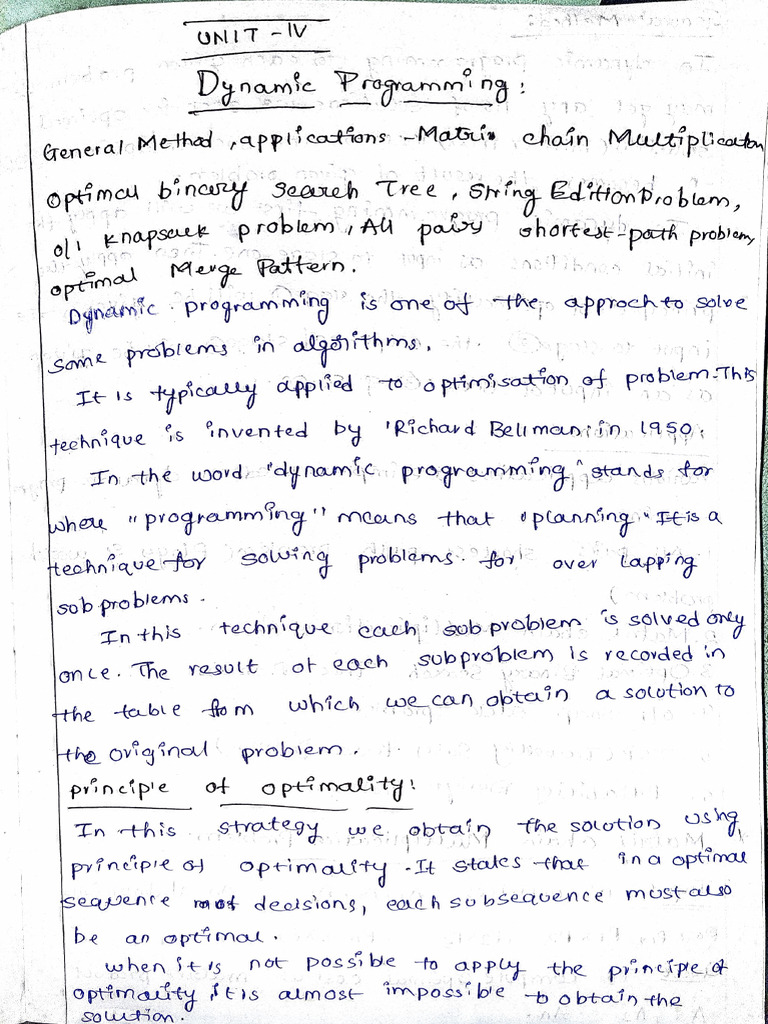 UNIT - IV
Dynamic Programming:
General Method, applications - Matrix chain Multiplication
optimal binary search Tree, String Edition Problem,
0/1 knapsack problem, All pairs shortest-path problem,
optimal Merge Pattern.
Dynamic programming is one of the approch to solve
some problems in algorithms.
It is typically applied to optimisation of problem. This
technique is invented by 'Richard Bellman' in 1950.
In the word "dynamic programming" stands for
where "programming" means that "planning" It is a
technique for solving problems for over lapping
sub problems.
In this technique each sub problem is solved only
once. The result of each subproblem is recorded in
the table from which we can obtain a solution to
the original problem.
principle of optimality:
In this strategy we obtain the solution using
principle of optimality. It states that in a optimal
sequence of decisions, each subsequence must also
be an optimal.
when it is not possible to apply the principle of
optimality it is almost impossible to obtain the
solution.